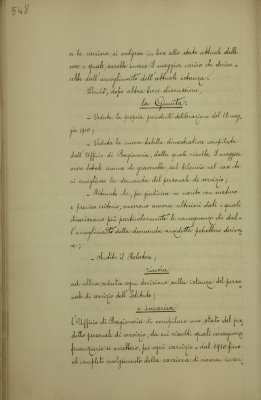 548
se la carriera si svolgesse in base allo stato attuale delle
cose e quale sarebbe invece il maggior carico che derive-
rebbe dall'accoglimento dell'attuale istanza.
Quindi, dopo altra breve discussione,
la Giunta,
- Veduta la propria precedente deliberazione del 18 mag-
gio 1910;
- Veduta la nuova tabella dimostrativa compilata
dall'Ufficio di Ragioneria, dalla quale risulta il maggior
onere totale annuo da gravarsi sul bilancio nel caso che
si accogliesse la domanda del personale di servizio;
- Ritenuto che, per giudicare in merito con maturo
e preciso criterio, occorrono ancora ulteriori dati i quali
dimostrino più particolarmente le conseguenze che dal-
l'accoglimento della domanda suddetta potrebbero deriva-
re;
- Sentito il Relatore;
rinvia
ad altra seduta ogni decisione sulla istanza del perso-
nale di servizio dell'Istituto;
e incarica
l'Ufficio di Ragioneria di compilare uno stato del pre-
detto personale di servizio, da cui risulti quali conseguenze
finanziarie si avrebbero, per ogni esercizio, dal 1910 fino
al completo svolgimento della carriera di ciascun inser-